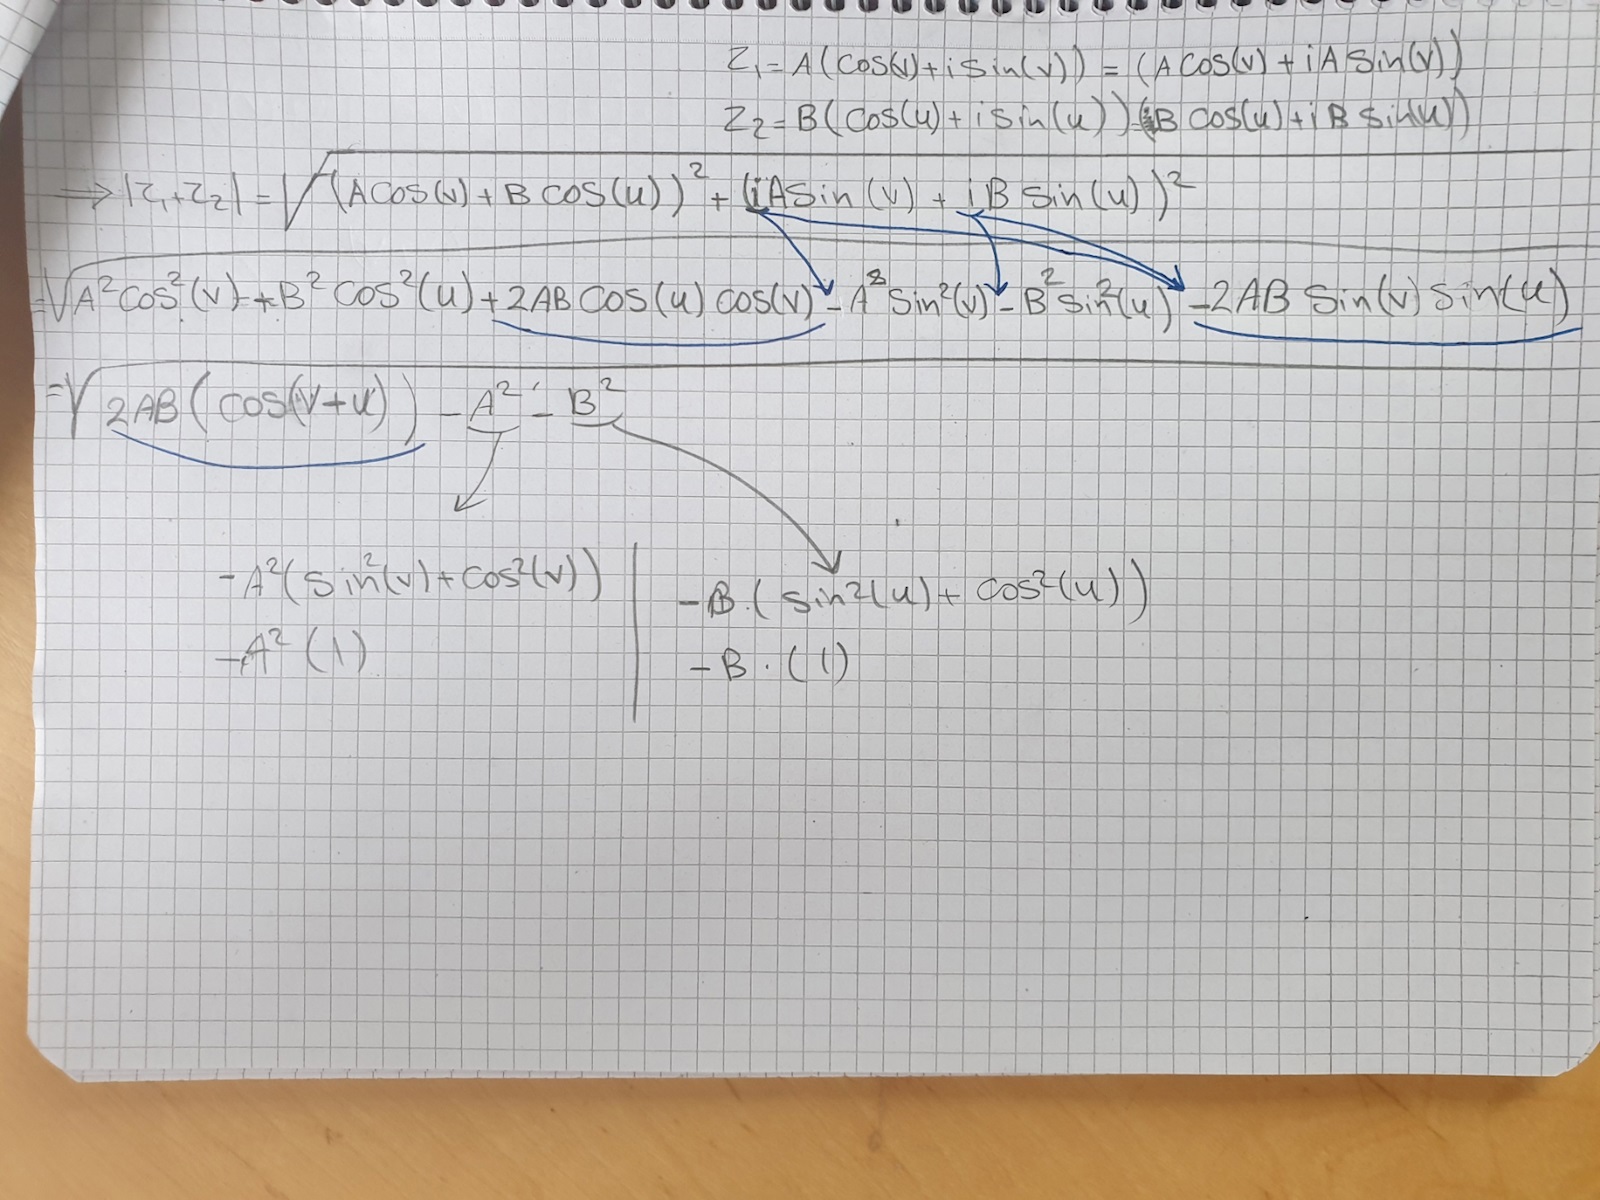 Z₁ = A(cos(v)+i sin(v)) = (A cos(v) + i A sin(v))
Z₂ = B(cos(u)+i sin(u)) (B cos(u)+i B sin(u))
⇒ |Z₁+Z₂| = √(A cos(v) + B cos(u))² + (i A sin(v) + i B sin(u))²
= √A² cos²(v) + B² cos²(u) + 2AB cos(u) cos(v) - A² sin²(v) - B² sin²(u) - 2AB sin(v) sin(u)
= √2AB(cos(v+u)) - A² - B²
-A²(sin²(v)+cos²(v))
-B·(sin²(u)+ cos²(u))
-A² (1)
-B · (1)